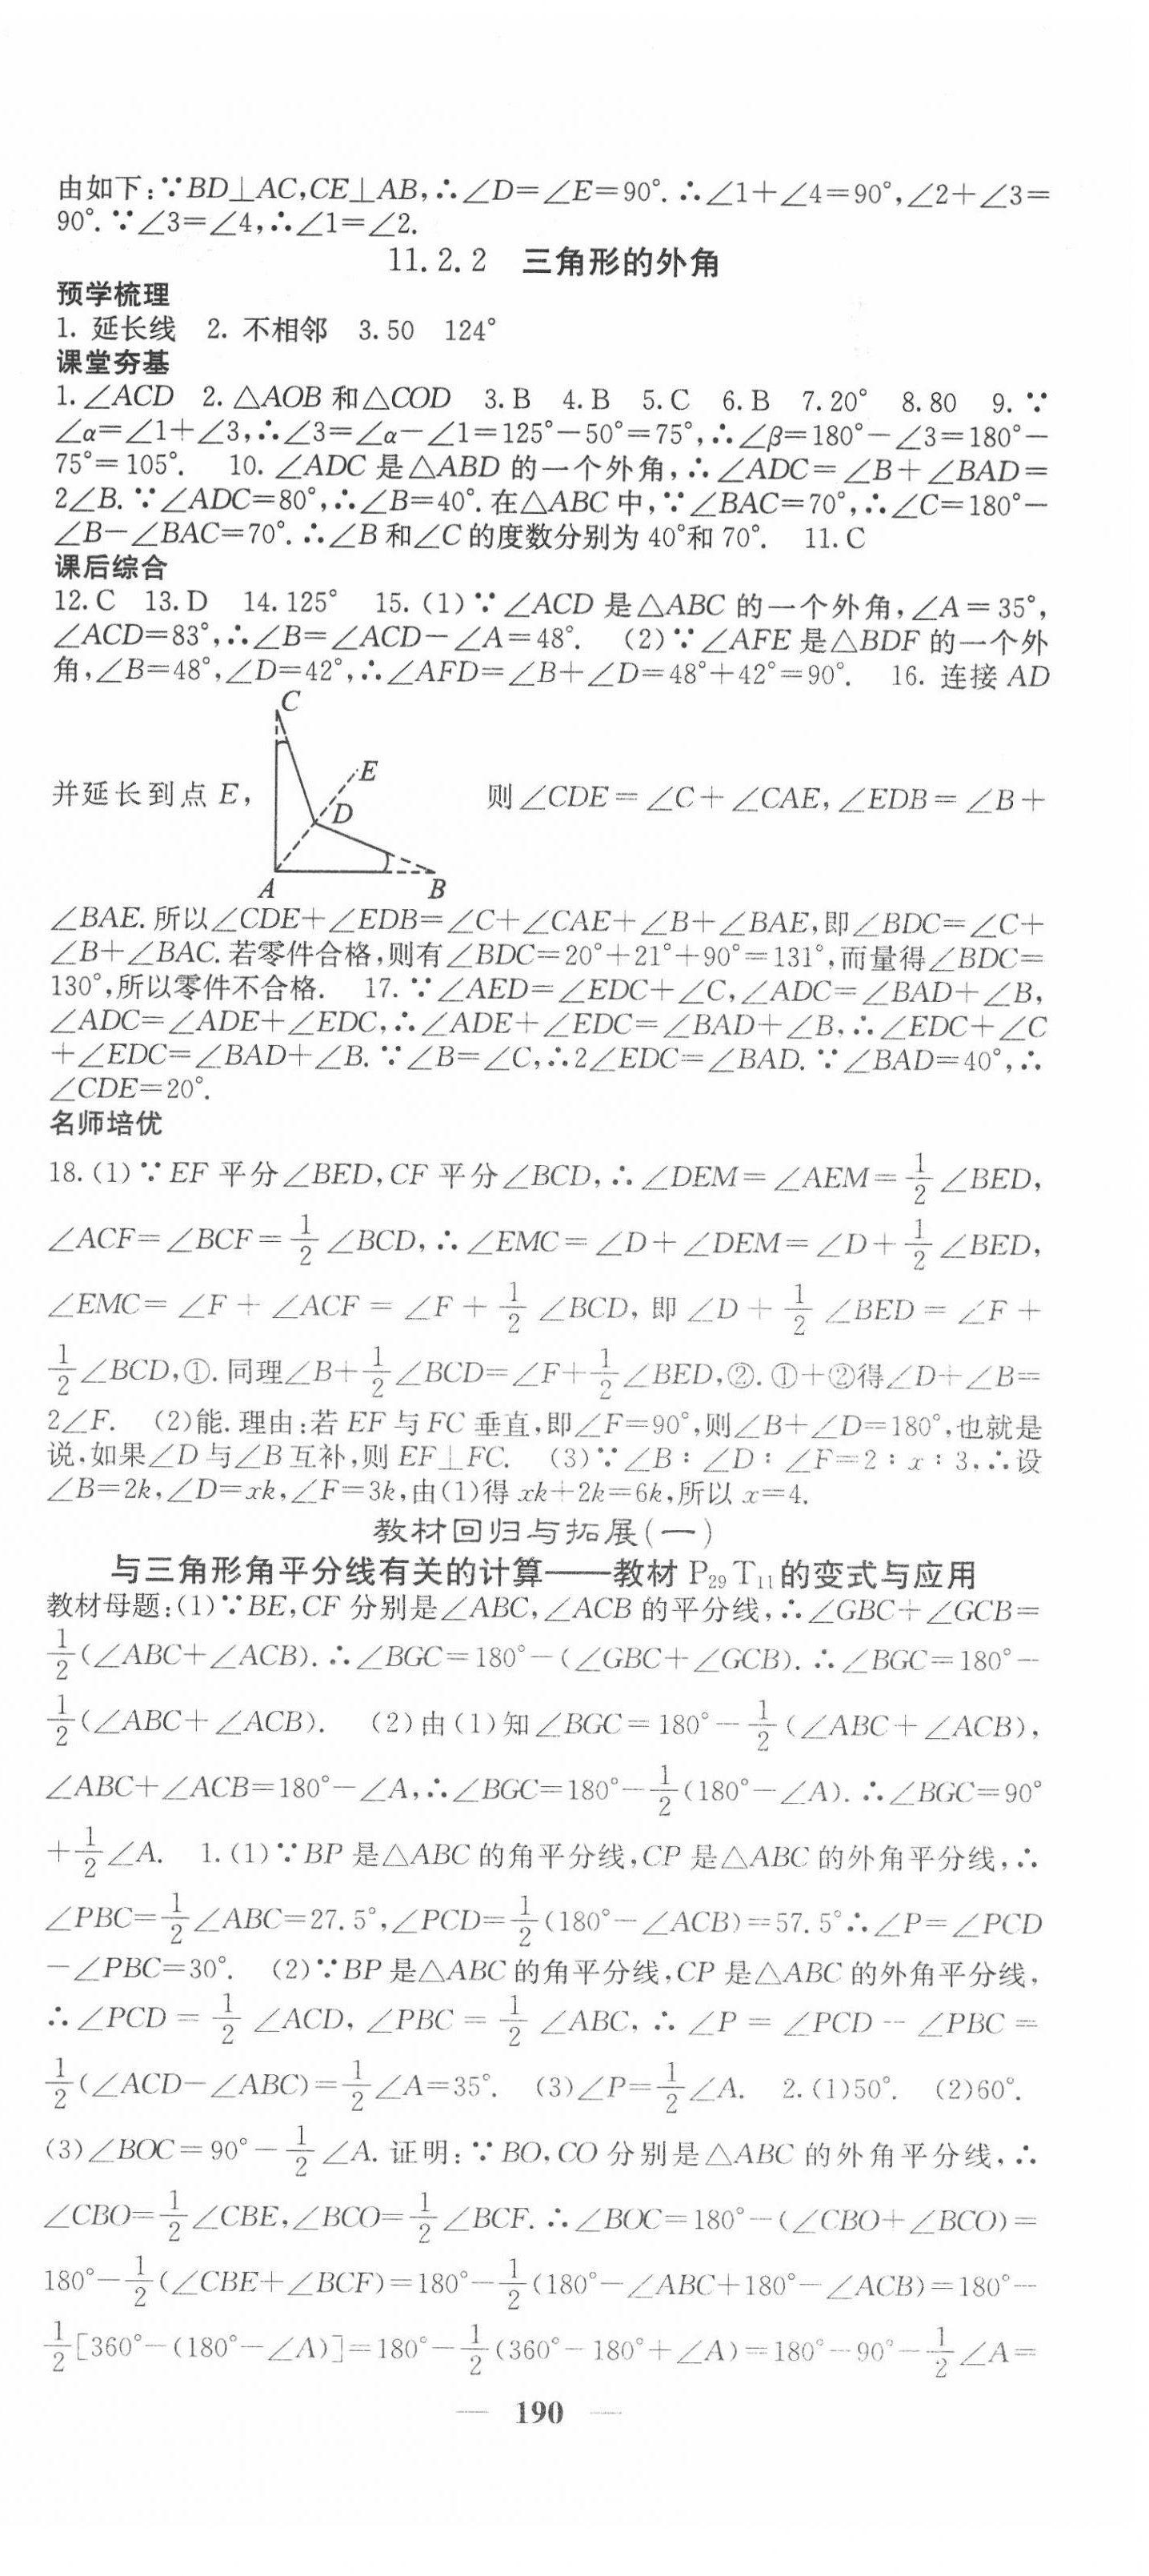 由如下:∵BD⊥AC,CE⊥AB,∴∠D=∠E=90°.∴∠1+∠4=90°,∠2+∠3=
90°.∵∠3=∠4,∴∠1=∠2.
11.2.2 三角形的外角
预学梳理
1. 延长线 2. 不相邻 3.50 124°
课堂夯基
1.∠ACD 2.△AOB和△COD 3.B 4.B 5.C 6.B 7.20° 8.80 9.∵
∠α=∠1+∠3,∴∠3=∠α-∠1=125°-50°=75°,∴∠β=180°-∠3=180°-
75°=105°. 10.∠ADC是△ABD的一个外角,∴∠ADC=∠B+∠BAD=
2∠B.∵∠ADC=80°,∴∠B=40°.在△ABC中,∵∠BAC=70°,∴∠C=180°-
∠B-∠BAC=70°.∴∠B和∠C的度数分别为40°和70°. 11.C
课后综合
12.C 13.D 14.125° 15.(1)∵∠ACD是△ABC的一个外角,∠A=35°,
∠ACD=83°,∴∠B=∠ACD-∠A=48°. (2)∵∠AFE是△BDF的一个外
角,∠B=48°,∠D=42°,∴∠AFD=∠B+∠D=48°+42°=90°. 16. 连接AD
C
E
并延长到点E, 则∠CDE=∠C+∠CAE,∠EDB=∠B+
D
A B
∠BAE.所以∠CDE+∠EDB=∠C+∠CAE+∠B+∠BAE,即∠BDC=∠C+
∠B+∠BAC.若零件合格,则有∠BDC=20°+21°+90°=131°,而量得∠BDC=
130°,所以零件不合格. 17.∵∠AED=∠EDC+∠C,∠ADC=∠BAD+∠B,
∠ADC=∠ADE+∠EDC,∴∠ADE+∠EDC=∠BAD+∠B,∴∠EDC+∠C
+∠EDC=∠BAD+∠B.∵∠B=∠C,∴2∠EDC=∠BAD.∵∠BAD=40°,∴
∠CDE=20°.
名师培优
18.(1)∵EF平分∠BED,CF平分∠BCD,∴∠DEM=∠AEM=1/2∠BED,
∠ACF=∠BCF=1/2∠BCD,∴∠EMC=∠D+∠DEM=∠D+1/2∠BED,
∠EMC=∠F+∠ACF=∠F+1/2∠BCD,即∠D+1/2∠BED=∠F+
1/2∠BCD,①.同理∠B+1/2∠BCD=∠F+1/2∠BED,②.①+②得∠D+∠B=
2∠F. (2)能.理由:若EF与FC垂直,即∠F=90°,则∠B+∠D=180°,也就是
说,如果∠D与∠B互补,则EF⊥FC. (3)∵∠B∶∠D∶∠F=2∶x∶3,∴设
∠B=2k,∠D=xk,∠F=3k,由(1)得xk+2k=6k,所以x=4.
教材回归与拓展(一)
与三角形角平分线有关的计算——教材P29T11的变式与应用
教材母题:(1)∵BE,CF分别是∠ABC,∠ACB的平分线,∴∠GBC+∠GCB=
1/2(∠ABC+∠ACB).∴∠BGC=180°-(∠GBC+∠GCB).∴∠BGC=180°-
1/2(∠ABC+∠ACB). (2)由(1)知∠BGC=180°-1/2(∠ABC+∠ACB),
∠ABC+∠ACB=180°-∠A,∴∠BGC=180°-1/2(180°-∠A).∴∠BGC=90°
+1/2∠A. 1.(1)∵BP是△ABC的角平分线,CP是△ABC的外角平分线,∴
∠PBC=1/2∠ABC=27.5°,∠PCD=1/2(180°-∠ACB)=57.5°∴∠P=∠PCD
-∠PBC=30°. (2)∵BP是△ABC的角平分线,CP是△ABC的外角平分线,
∴∠PCD=1/2∠ACD,∠PBC=1/2∠ABC,∴∠P=∠PCD-∠PBC=
1/2(∠ACD-∠ABC)=1/2∠A=35°. (3)∠P=1/2∠A. 2.(1)50°. (2)60°.
(3)∠BOC=90°-1/2∠A.证明:∵BO,CO分别是△ABC的外角平分线,∴
∠CBO=1/2∠CBE,∠BCO=1/2∠BCF.∴∠BOC=180°-(∠CBO+∠BCO)=
180°-1/2(∠CBE+∠BCF)=180°-1/2(180°-∠ABC+180°-∠ACB)=180°-
1/2[360°-(180°-∠A)]=180°-1/2(360°-180°+∠A)=180°-90°-1/2∠A=
— 190 —